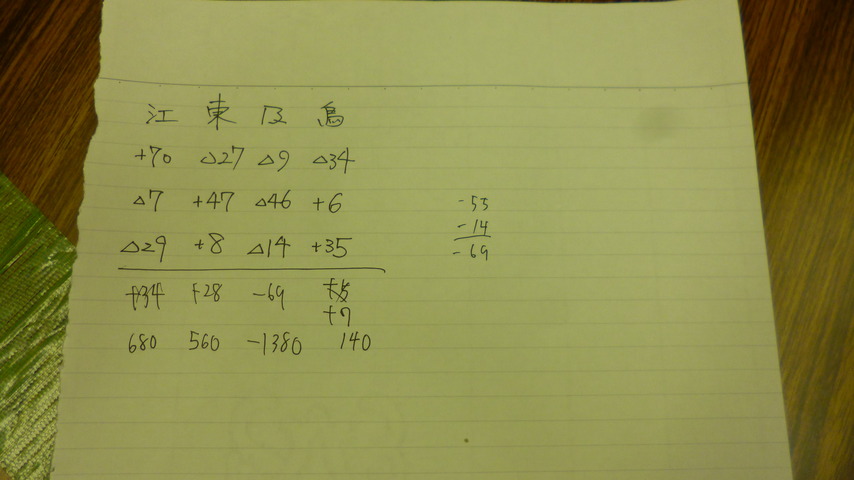 江 東 及 鳥
+70 △27 △9 △34
△7 +47 △46 +6
△29 +8 △14 +35
+34 +28 -69
+7
680 560 -1380 140
-55
-14
-69